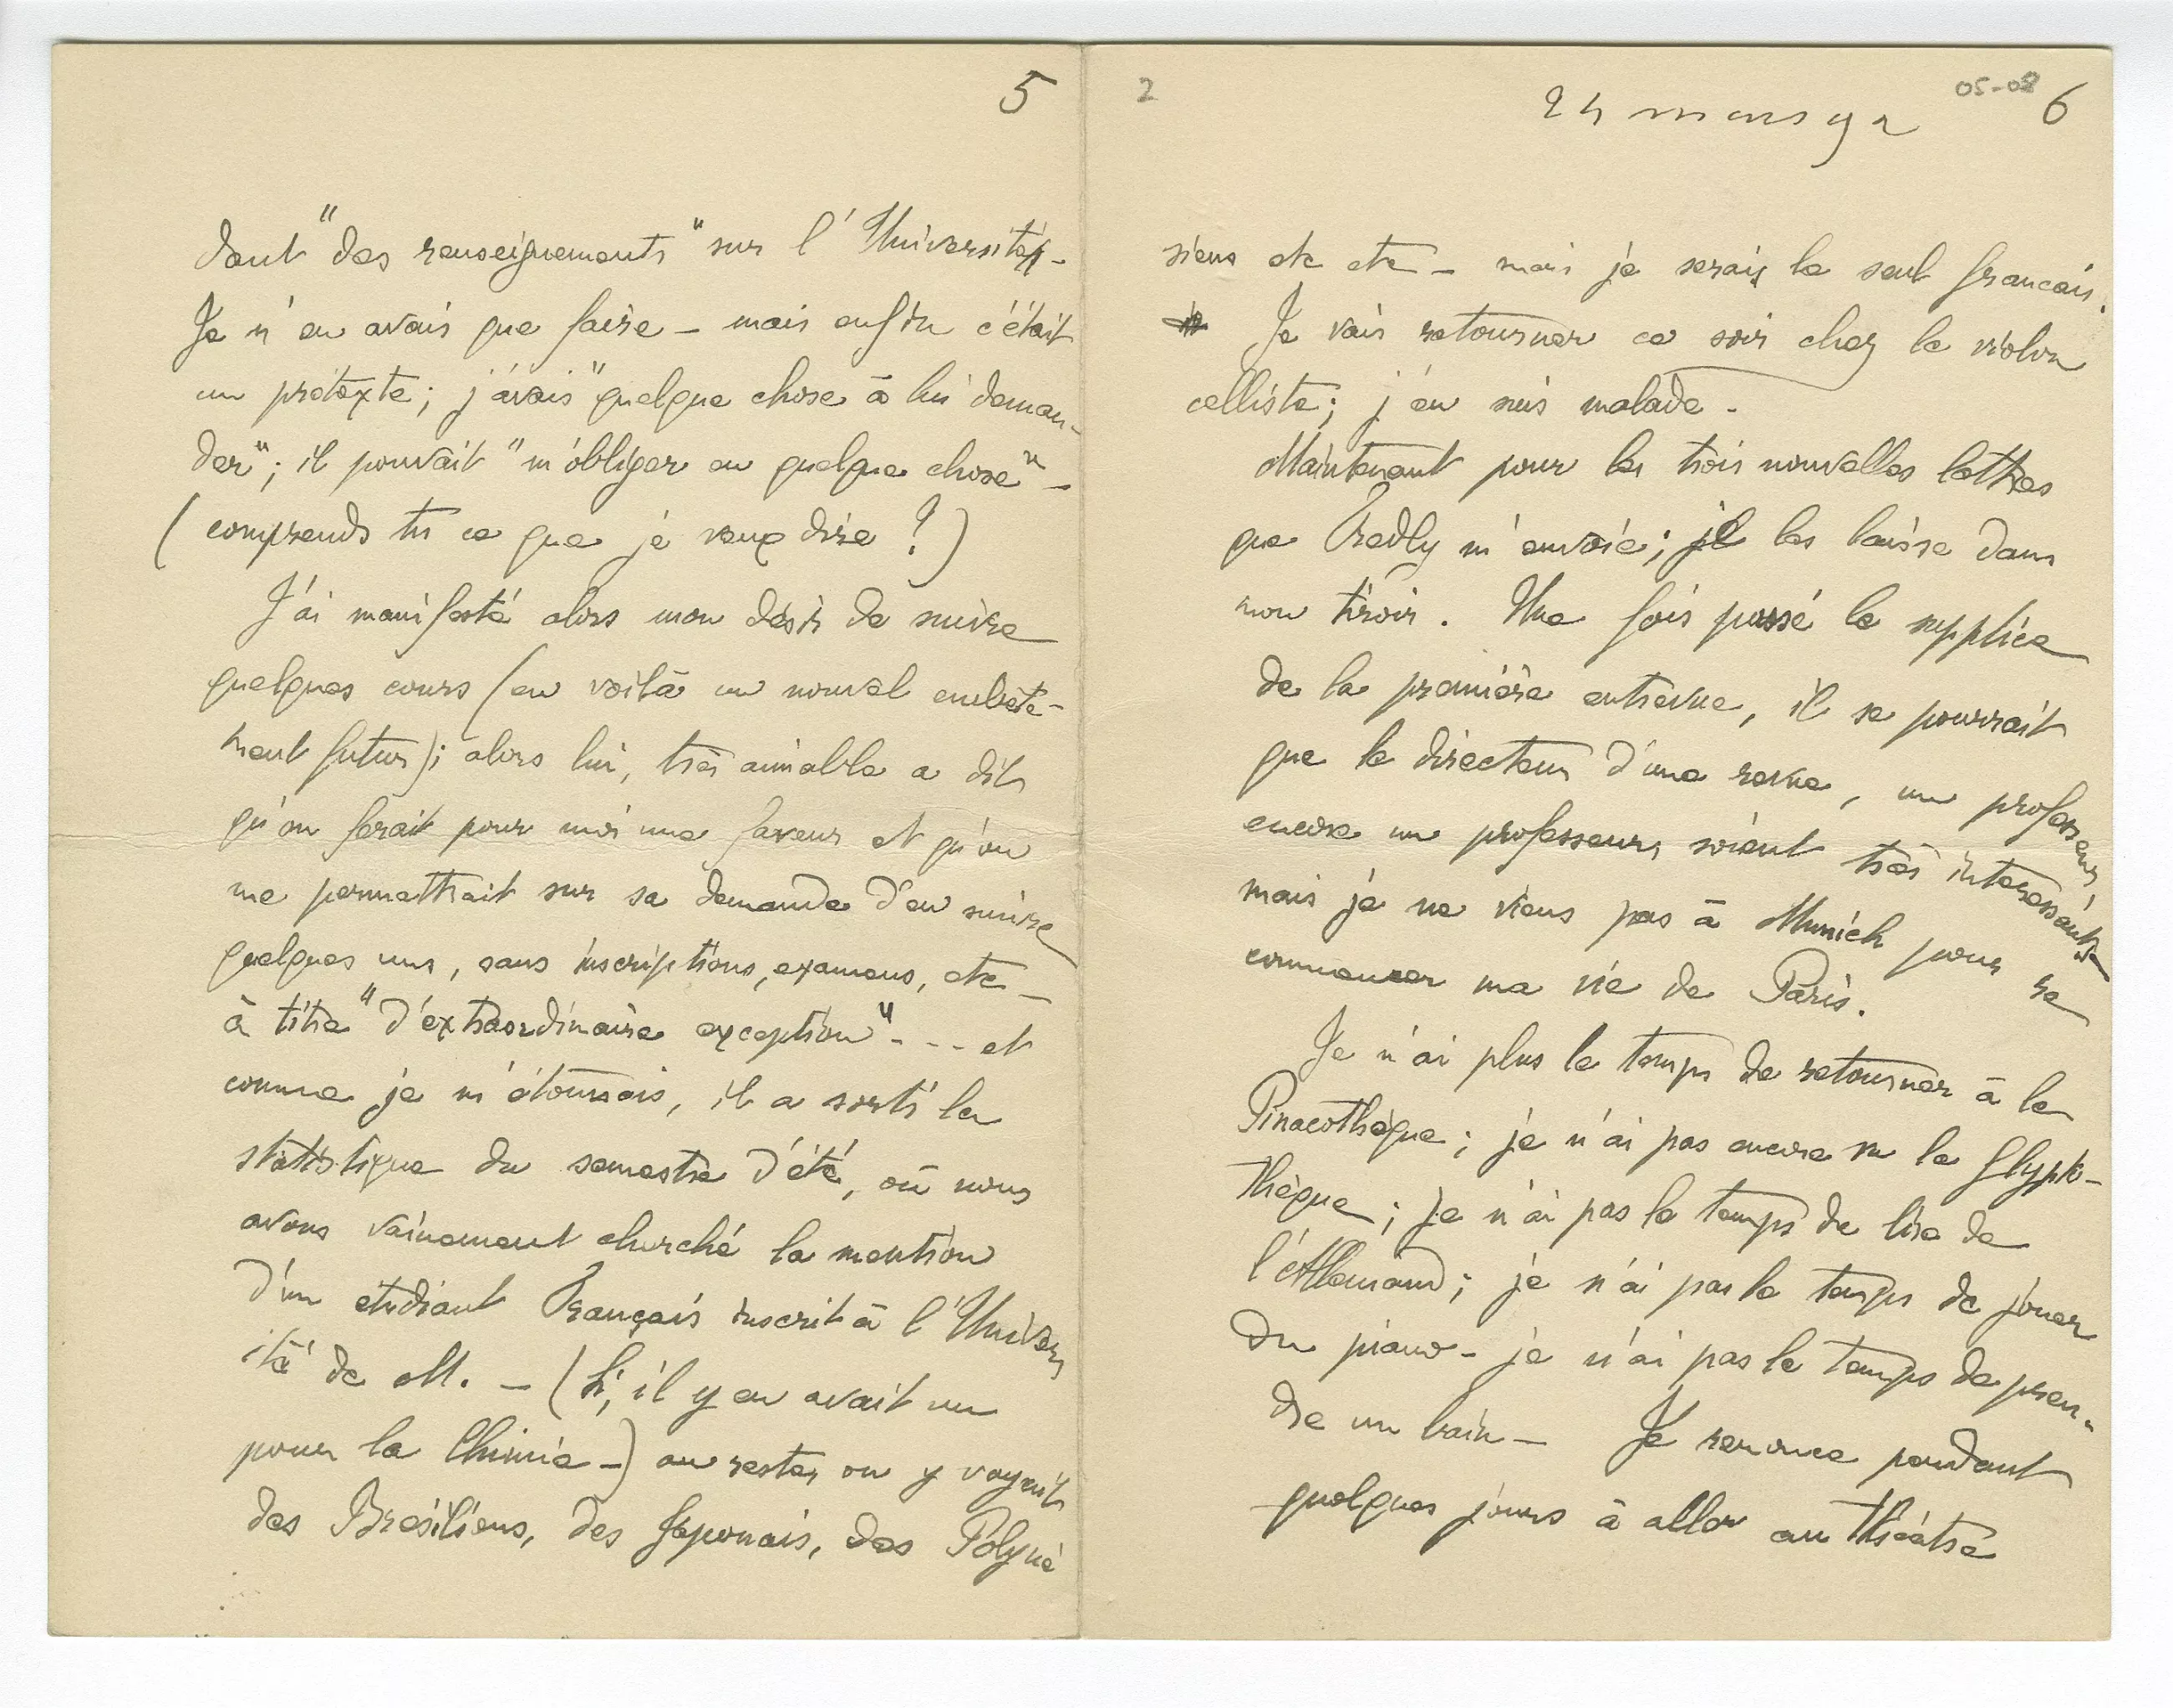 5
dant "des renseignements" sur l'Université, -
Je n'en avais que faire - mais enfin c'était
un prétexte; j'avais "quelque chose à lui deman-
der"; il pouvait "m'obliger en quelque chose" -
(comprends tu ce que je veux dire ?)
J'ai manifesté alors mon désir de suivre
quelques cours (en voilà un nouvel embête-
ment futur); alors lui, très aimable a dit
qu'on ferait pour moi une faveur et qu'on
me permettrait sur sa demande d'en suivre
quelques uns, sans inscriptions, examens, etc -
à titre "d'extraordinaire exception" - - - et
comme je m'étonnais, il a sorti la
statistique du semestre d'été, où nous
avons vainement cherché la mention
d'un étudiant Français inscrit à l'Univers
ité de M. - (Si, il y en avait un
pour la Chimie -) au reste, on y voyait
des Brésiliens, des Japonais, des Polyné
2
24 mars 92
05-08
6
siens etc etc - mais je serais le seul francais.
Je vais retourner ce soir chez le violon
celliste; j'en suis malade -
Maintenant pour les trois nouvelles lettres
que Fredly m'envoie; je les laisse dans
mon tiroir. Une fois passé le supplice
de la première entrevue, il se pourrait
que le directeur d'une revue, un professeur,
encore un professeur, soient très interessants
mais je ne viens pas à Munich pour re
commencer ma vie de Paris.
Je n'ai plus le temps de retourner à la
Pinacothèque; je n'ai pas encore vu la Glypto-
thèque; je n'ai pas le temps de lire de
l'Allemand; je n'ai pas le temps de jouer
du piano - je n'ai pas le temps de pren-
dre un bain - Je renonce pendant
quelques jours à aller au théâtre